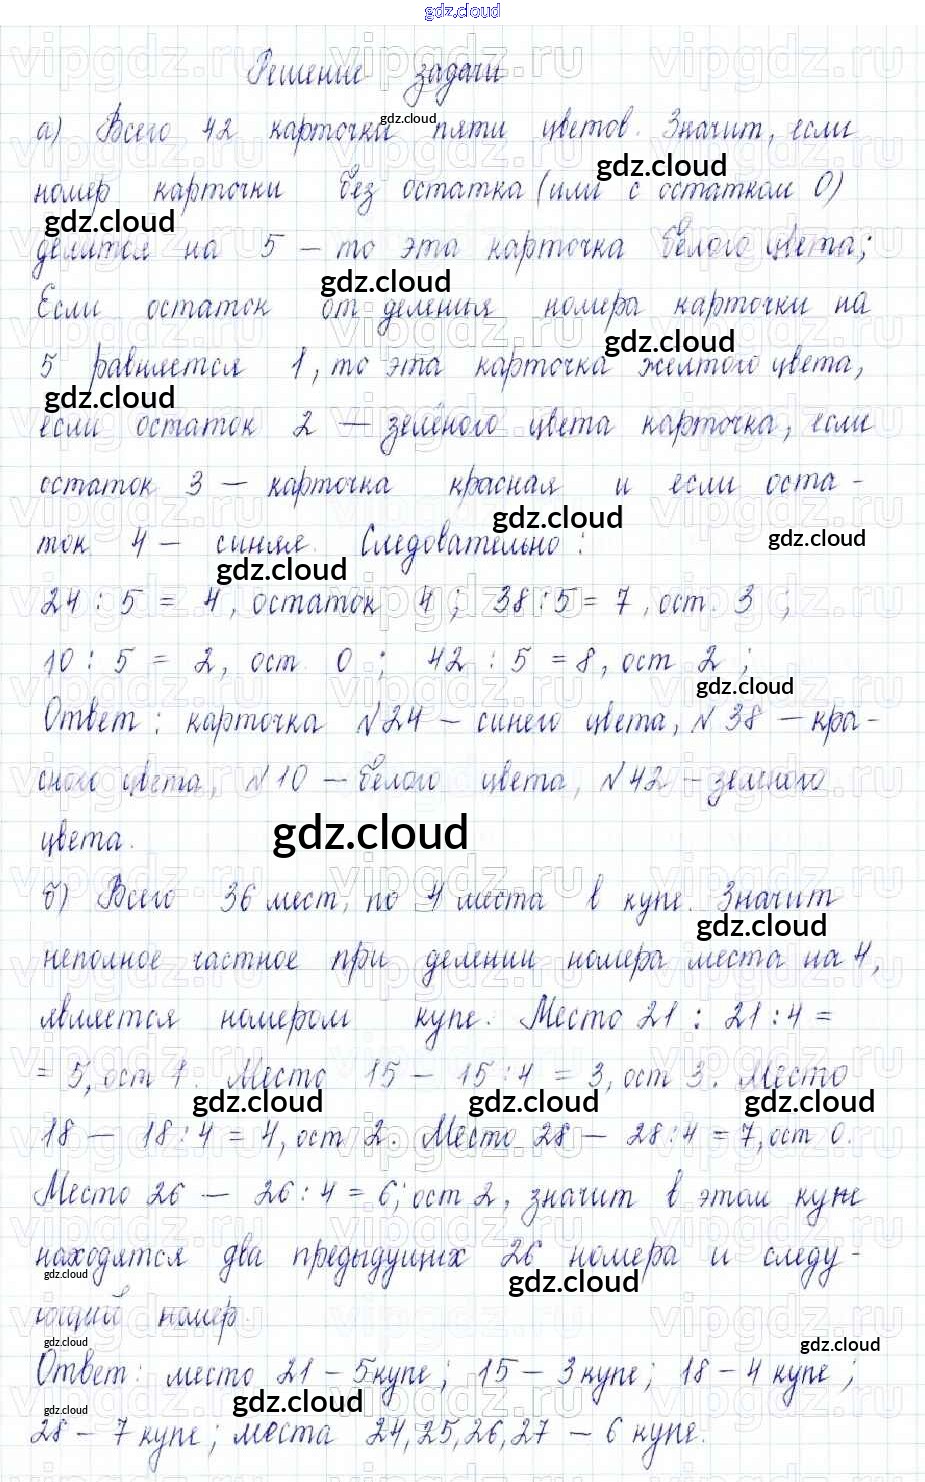 gdz.cloud
Решение задачи
а) Всего 42 карточки пяти цветов. Значит, если
номер карточки без остатка (или с остатком 0)
делится на 5 – то эта карточка белого цвета;
Если остаток от деления номера карточки на
5 равняется 1, то эта карточка желтого цвета,
если остаток 2 – зелёного цвета карточка, если
остаток 3 – карточка красная и если оста-
ток 4 – синяя. Следовательно:
24 : 5 = 4, остаток 4; 38:5 = 7, ост. 3;
10 : 5 = 2, ост. 0; 42 : 5 = 8, ост 2;
Ответ: карточка №24 – синего цвета, №38 – кра-
сного цвета, №10 – белого цвета, №42 – зеленого
цвета.
б) Всего 36 мест, по 4 места в купе. Значит
неполное частное при делении номера места на 4,
является номером купе. Место 21 : 21:4 =
= 5, ост 1. Место 15 – 15:4 = 3, ост 3. Место
18 – 18:4 = 4, ост 2. Место 28 – 28:4 = 7, ост 0.
Место 26 – 26:4 = 6; ост 2, значит в этом купе
находятся два предыдущих 26 номера и следу-
ющий номер.
Ответ: место 21 – 5 купе; 15 – 3 купе; 18 – 4 купе;
28 – 7 купе; места 24, 25, 26, 27 – 6 купе.